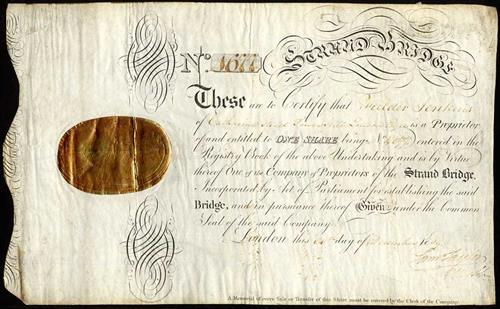 STRAND BRIDGE
No. 4677
These are to Certify that Fielder Jenkins
of is a Proprietor
of and entitled to ONE SHARE being No. entered in the
Registry Book of the above Undertaking and is by Virtue
thereof One of ye. Company of Proprietors of the Strand Bridge,
Incorporated by Act of Parliament for establishing the said
Bridge, and in pursuance thereof Given under the Common
Seal of the said Company.
London this day of
A Memorial of every Sale or Transfer of this Share must be entered by the Clerk of the Company.